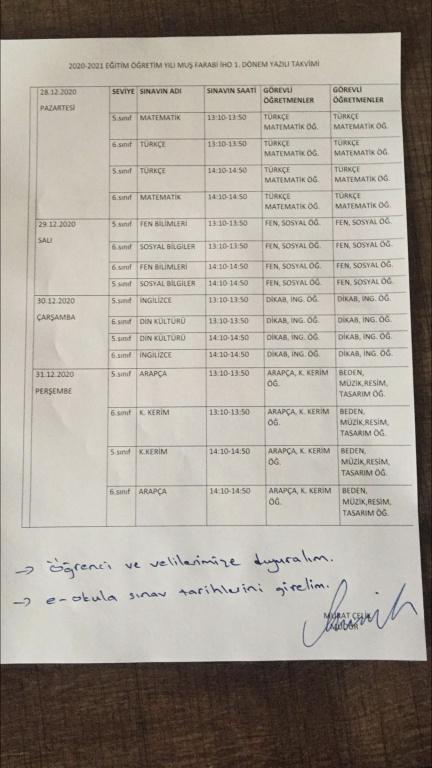 2020-2021 EĞİTİM ÖĞRETİM YILI MUŞ FARABİ İHO 1. DÖNEM YAZILI TAKVİMİ
28.12.2020 PAZARTESİ SEVİYE SINAVIN ADI SINAVIN SAATİ GÖREVLİ ÖĞRETMENLER GÖREVLİ ÖĞRETMENLER
5.sınıf MATEMATİK 13:10-13:50 TÜRKÇE MATEMATİK ÖĞ. TÜRKÇE MATEMATİK ÖĞ.
6.sınıf TÜRKÇE 13:10-13:50 TÜRKÇE MATEMATİK ÖĞ. TÜRKÇE MATEMATİK ÖĞ.
5.sınıf TÜRKÇE 14:10-14:50 TÜRKÇE MATEMATİK ÖĞ. TÜRKÇE MATEMATİK ÖĞ.
6.sınıf MATEMATİK 14:10-14:50 TÜRKÇE MATEMATİK ÖĞ. TÜRKÇE MATEMATİK ÖĞ.
29.12.2020 SALI 5.sınıf FEN BİLİMLERİ 13:10-13:50 FEN, SOSYAL ÖĞ. FEN, SOSYAL ÖĞ.
6.sınıf SOSYAL BİLGİLER 13:10-13:50 FEN, SOSYAL ÖĞ. FEN, SOSYAL ÖĞ.
6.sınıf FEN BİLİMLERİ 14:10-14:50 FEN, SOSYAL ÖĞ. FEN, SOSYAL ÖĞ.
5.sınıf SOSYAL BİLGİLER 14:10-14:50 FEN, SOSYAL ÖĞ. FEN, SOSYAL ÖĞ.
30.12.2020 ÇARŞAMBA 5.sınıf İNGİLİZCE 13:10-13:50 DİKAB, İNG. ÖĞ. DİKAB, İNG. ÖĞ.
6.sınıf DİN KÜLTÜRÜ 13:10-13:50 DİKAB, İNG. ÖĞ. DİKAB, İNG. ÖĞ.
5.sınıf DİN KÜLTÜRÜ 14:10-14:50 DİKAB, İNG. ÖĞ. DİKAB, İNG. ÖĞ.
6.sınıf İNGİLİZCE 14:10-14:50 DİKAB, İNG. ÖĞ. DİKAB, İNG. ÖĞ.
31.12.2020 PERŞEMBE 5.sınıf ARAPÇA 13:10-13:50 ARAPÇA, K. KERİM ÖĞ. BEDEN, MÜZİK,RESİM, TASARIM ÖĞ.
6.sınıf K. KERİM 13:10-13:50 ARAPÇA, K. KERİM ÖĞ. BEDEN, MÜZİK,RESİM, TASARIM ÖĞ.
5.sınıf K.KERİM 14:10-14:50 ARAPÇA, K. KERİM ÖĞ. BEDEN, MÜZİK,RESİM, TASARIM ÖĞ.
6.sınıf ARAPÇA 14:10-14:50 ARAPÇA, K. KERİM ÖĞ. BEDEN, MÜZİK,RESİM, TASARIM ÖĞ.
→ Öğrenci ve velilerimize duyuralım.
→ e-okula sınav tarihlerini girelim.
MURAT ÇELİK
MÜDÜR